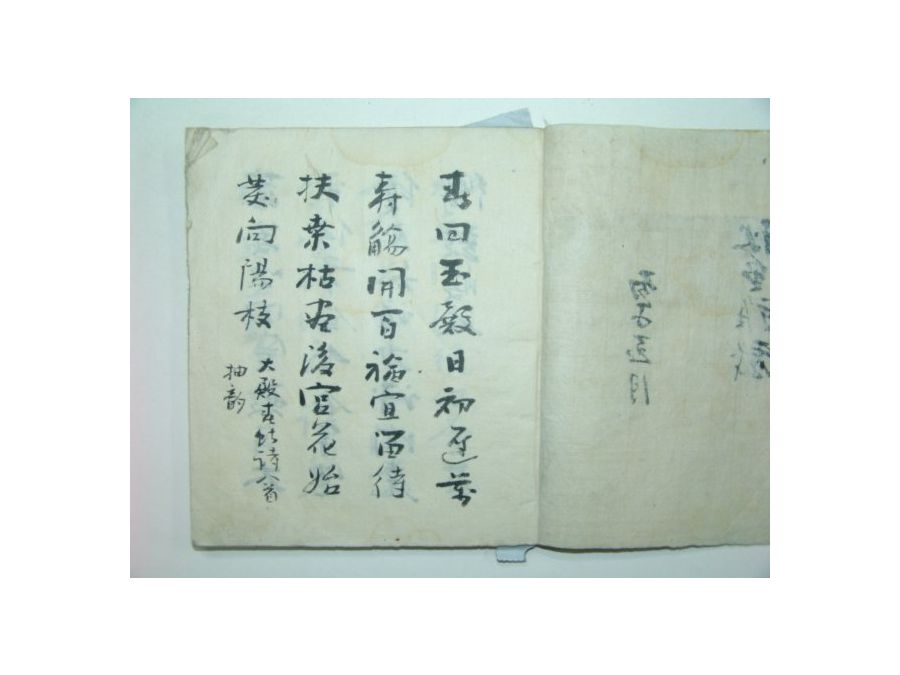 春回玉殿日初遲萬
壽觴開百福宜留待
扶桑枯盡後宮花始
發向陽枝
大殿春帖詩八首
抽韵